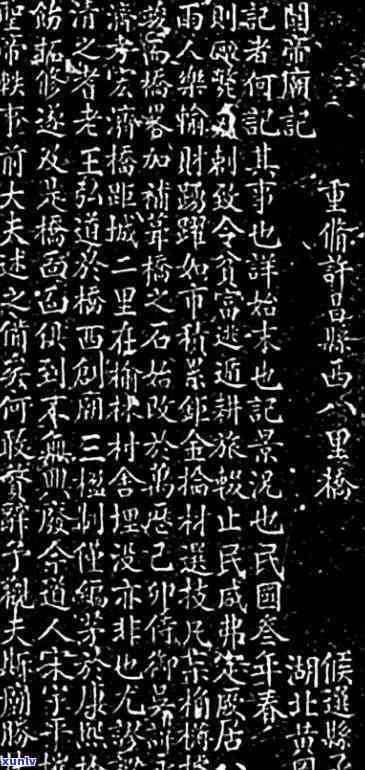 重脩許昌縣西八里橋 候選縣
關帝廟記 湖北黃
記者何記其事也詳始末也記景況也民國叁年春
則斃刺致令貧富逃遁耕旅輟止民咸弗定厥居
雨人樂愉財踴躍如市積累鉅金掄材選技凡桷
高橋畧加補葺橋之石始改於萬歷己卯侍御吳
濟考宏濟橋距城二里在榆林村舍埋没亦非也尤
清之耆老王弘道於橋西創廟三楹制僅編茅於康熙
飭拓修遂及是橋面面俱到不無興廢今道人宋宇平
聖帝軼事前大夫述之備矣何敢贅辭予觀夫斯廟勝
xunlv